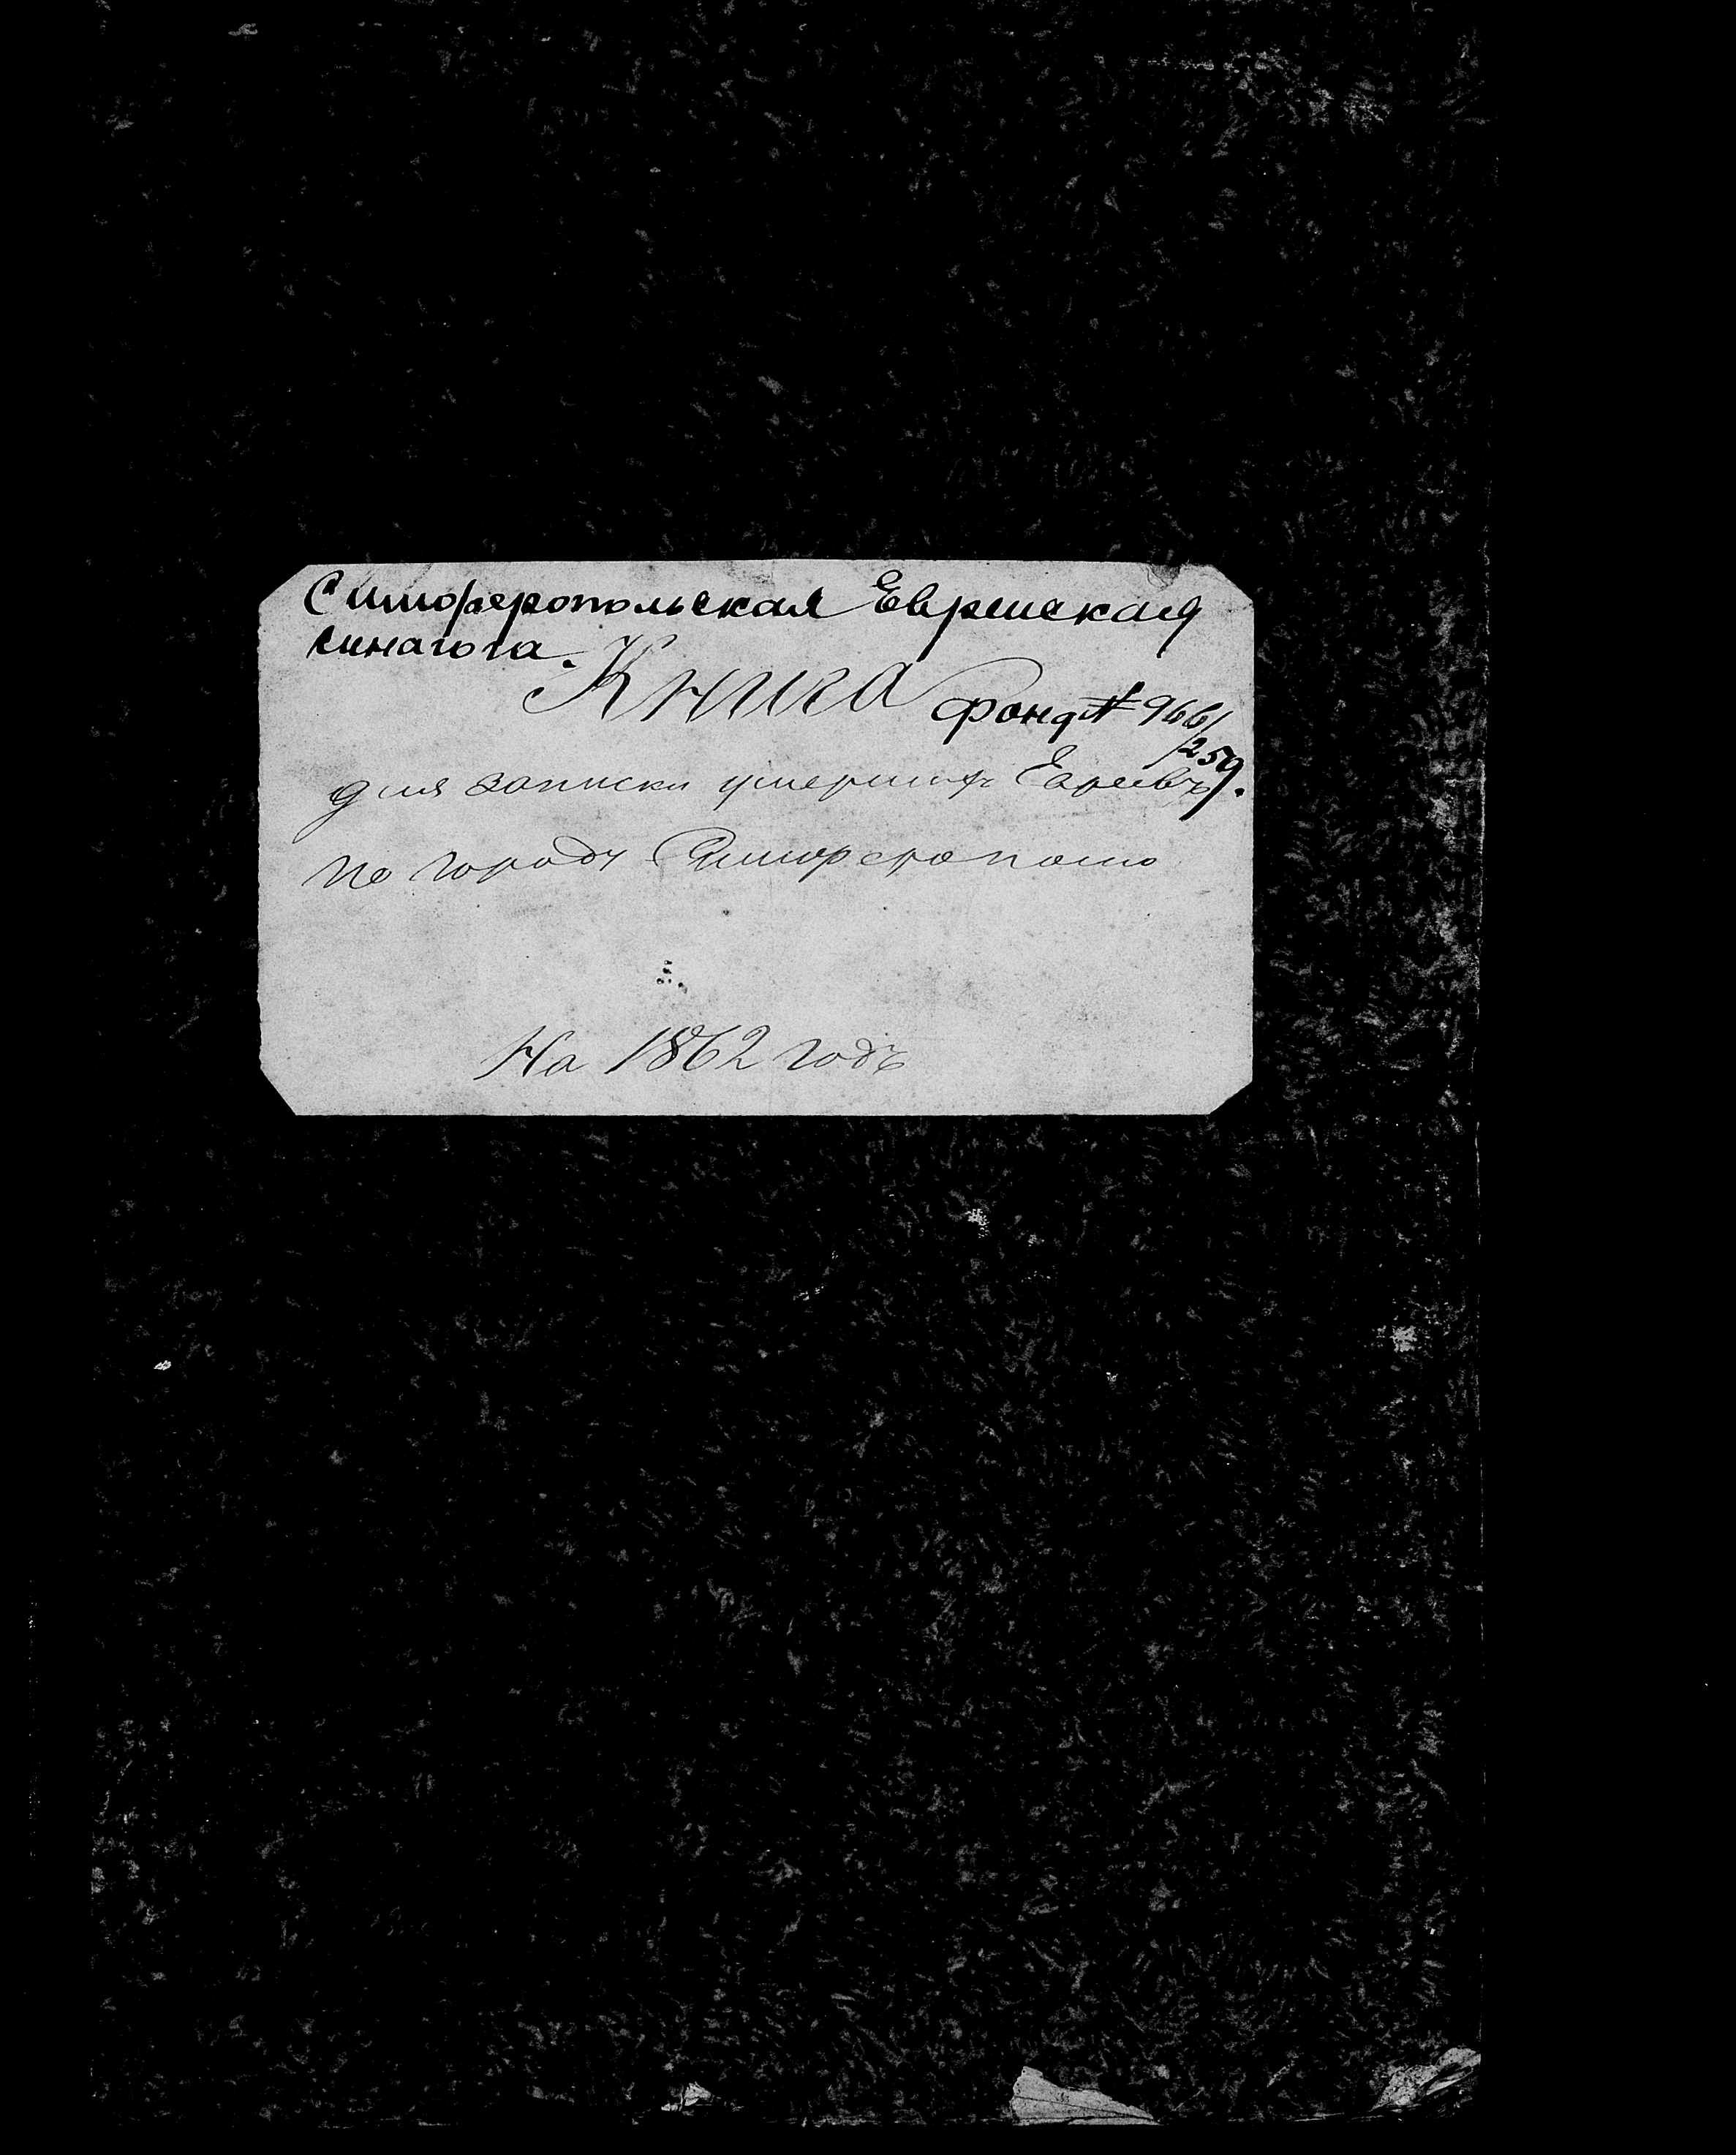 Симферопольская Еврейская
синагога.
Книга
фонд № 966/
259.
для записки умерших Евреевъ
по городу Симферополю
На 1862 годъ